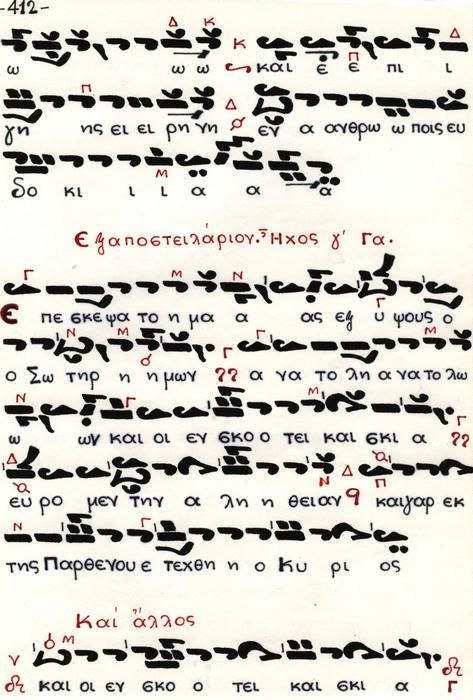 -412-
ω ω ω και ε ε πι ι
γη ης ει ει ρη νη εν α ανθρω ω ποις ευ
δο κι ι ι α α α
Εξαποστειλάριον. Ἦχος γ' Γα.
Ε πε σκεψα το η μα α ας εξ υ ψους ο
ο Σω τηρ η η μων α να το λη α να το λω
ω ων και οι εν σκο ο τει και σκι α
ευ ρο μεν την α λη η θειαν και γαρ εκ
της Παρθενου ε τεχθη η ο Κυ ρι ος
Καί ἄλλος
και οι εν σκο ο τει και σκι α